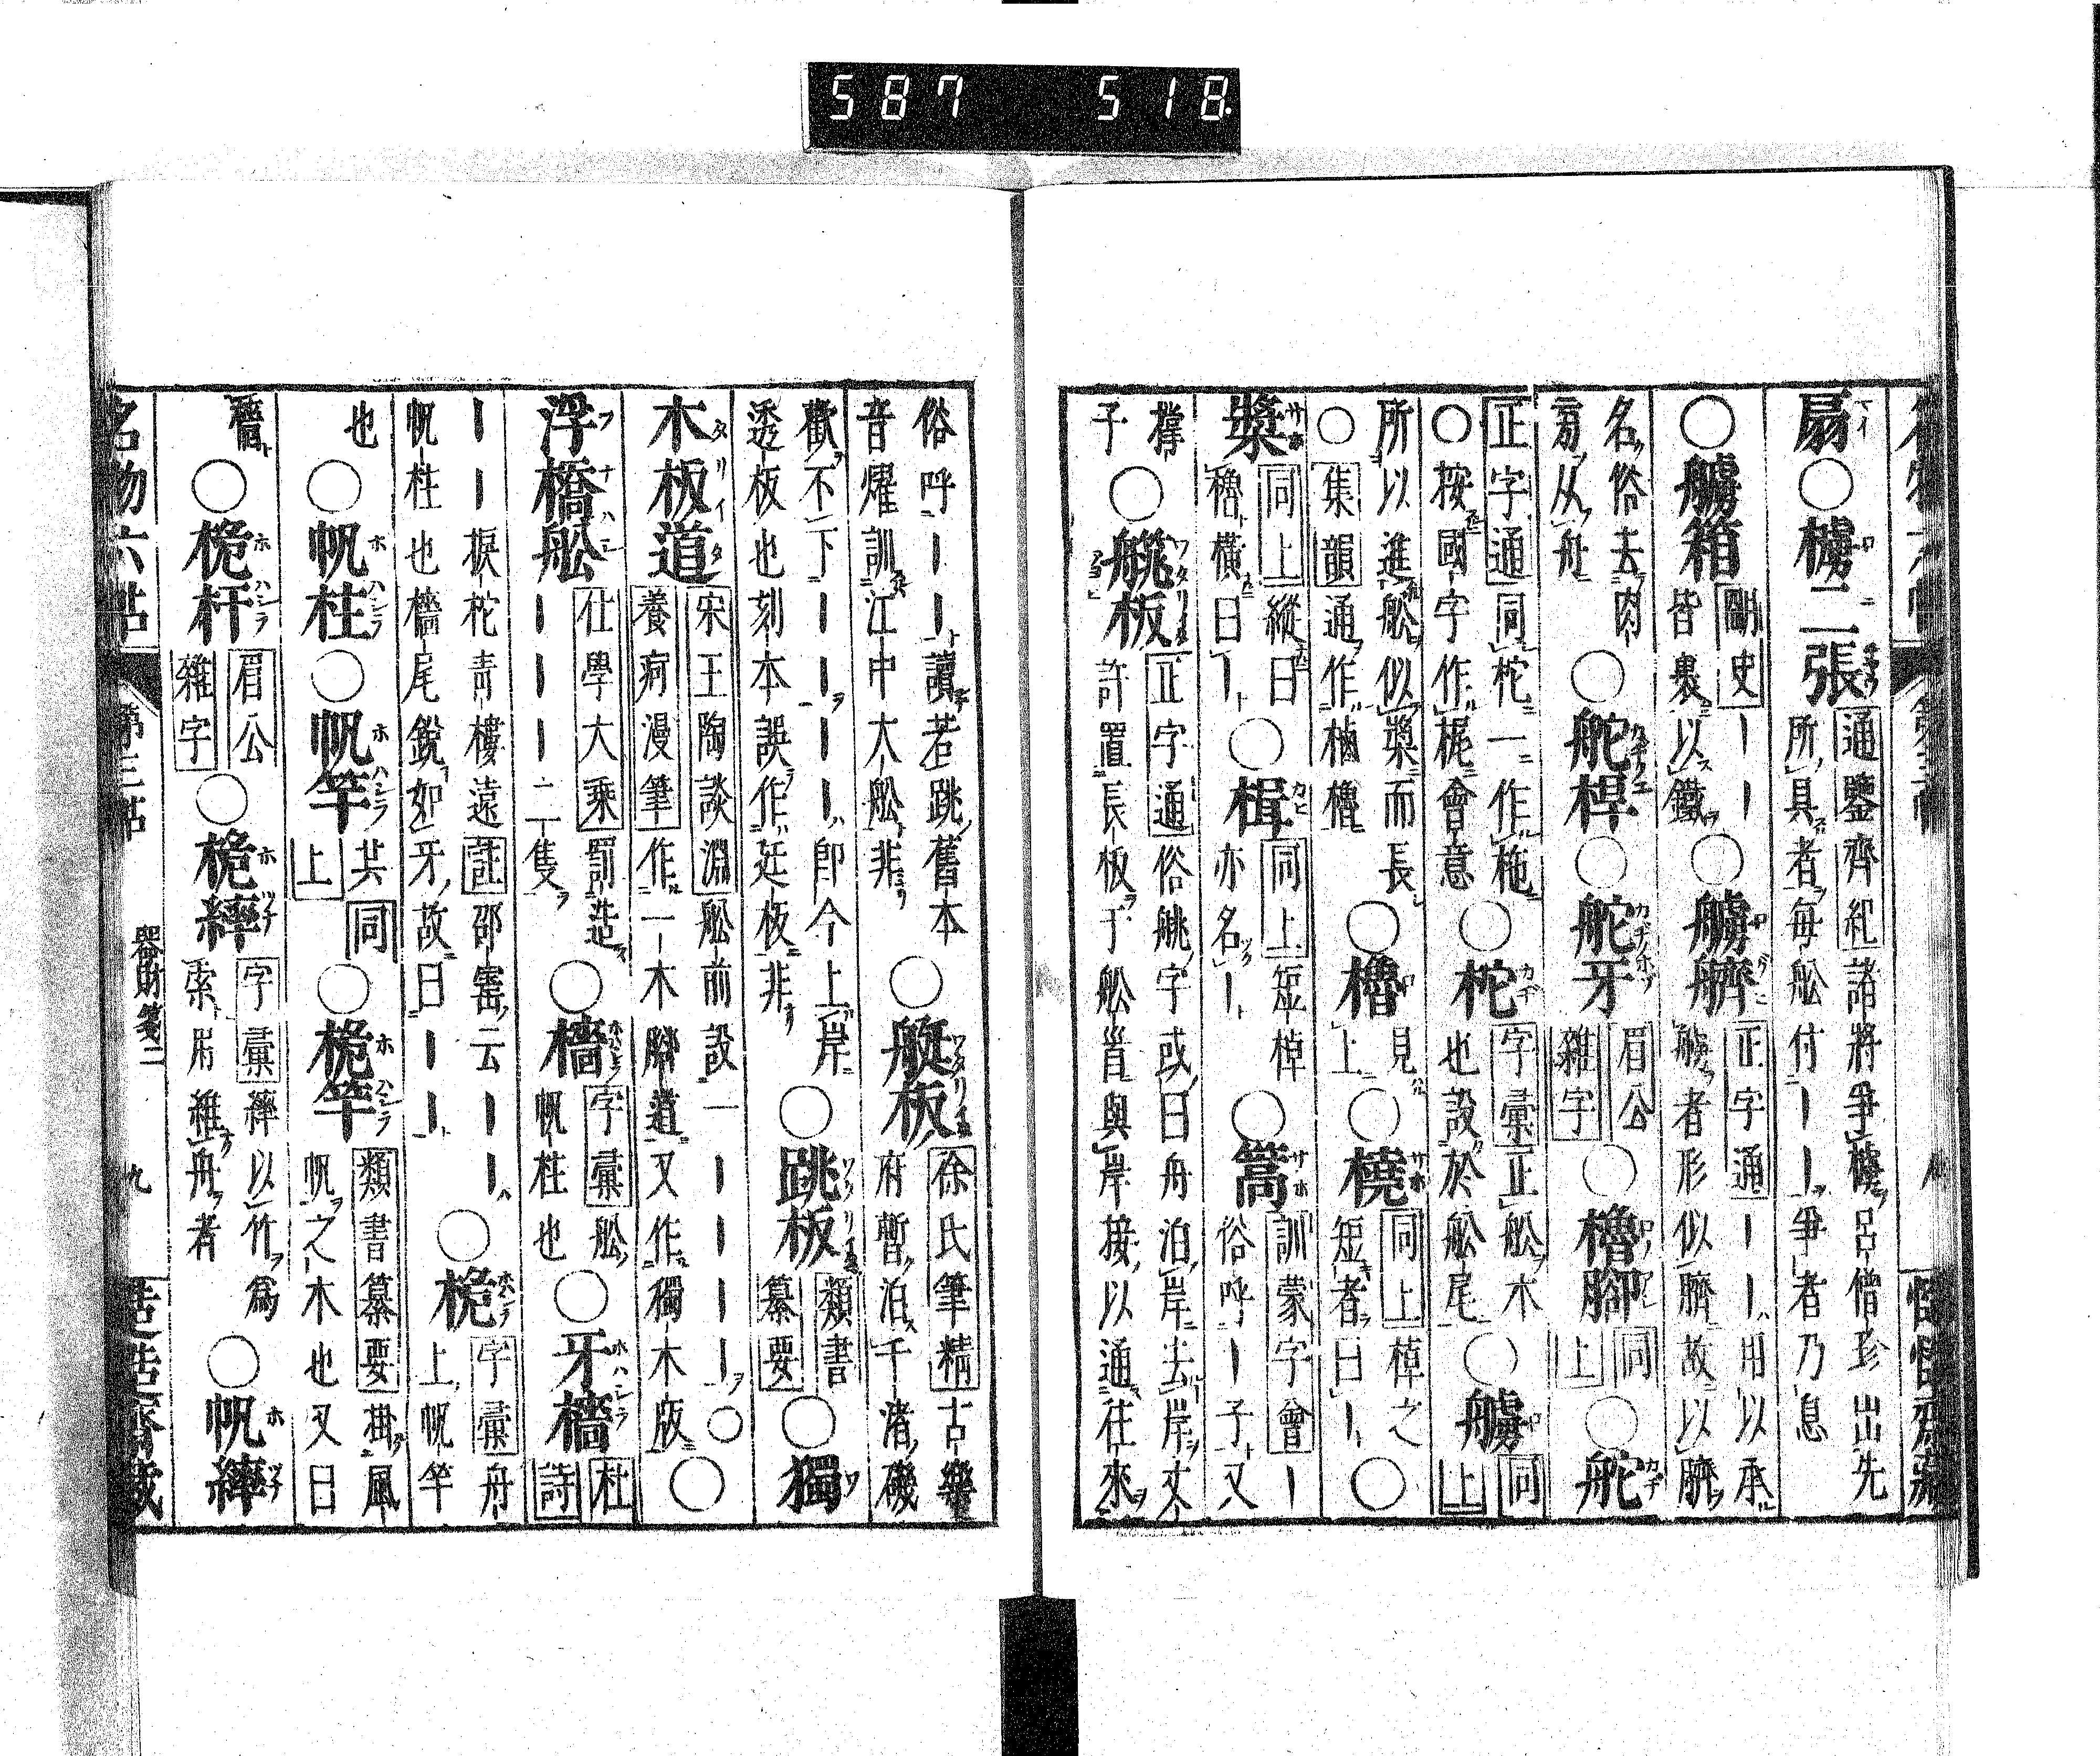 587 518
扇○艣二張 通鑒齊紀 諸將爭艣呂僧珍出先
所具者每舩付一一爭者乃息
○艣箱 南史 一一
皆裹以鐵 ○艣臍 正字通 一一用以承
艣者形似臍故以臍
名俗去肉
旁从舟 ○舵桿 ○舵牙 眉公
雜字 ○櫓腳 同
上 ○舵
正字通 同柁一作柂
○按國字作梶會意 ○柁 字彙 正舩木
也設於舩尾 ○艣 同
上
所以進舩似槳而長
○集韻 通作樐櫓 ○櫓 見
上 ○橈 同上 棹之
短者曰一 ○
槳 同上 縱曰
櫓橫曰一 ○楫 同上 短棹
亦名一 ○篙 訓蒙字會 一
俗呼一子又
撑
子 ○艞板 正字通 俗艞字或曰舟泊岸去岸丈
許置長板于舩首與岸接以通往來
俗呼一一讀若跳舊本
音燿訓江中大舩非 ○艇板 徐氏筆精 古樂
府暫泊千渚磯
歡不下一一一一即今上岸
透板也刻本誤作廷板非 ○跳板 類書
纂要 ○獨
木板道 宋王陶談淵 舩前設一一一一一○
養痾漫筆 作一木腳道又作獨木版 ○
浮橋舩 仕學大乘 罰造
一一一一二隻 ○檣 字彙 舩
帆柱也 ○牙檣 杜
詩
一一捩柁青樓遠 註 邵寶云一一
帆柱也檣尾銳如牙故曰一一 ○桅 字彙 舟
上帆竿
也 ○帆柱 ○帆竿 共同
上 ○桅竿 類書纂要 掛風
帆之木也又曰
檣 ○桅杆 眉公
雜字 ○桅繂 字彙 繂以竹爲
索所維舟者 ○帆繂
名物六帖 第三帖 器財箋二 九